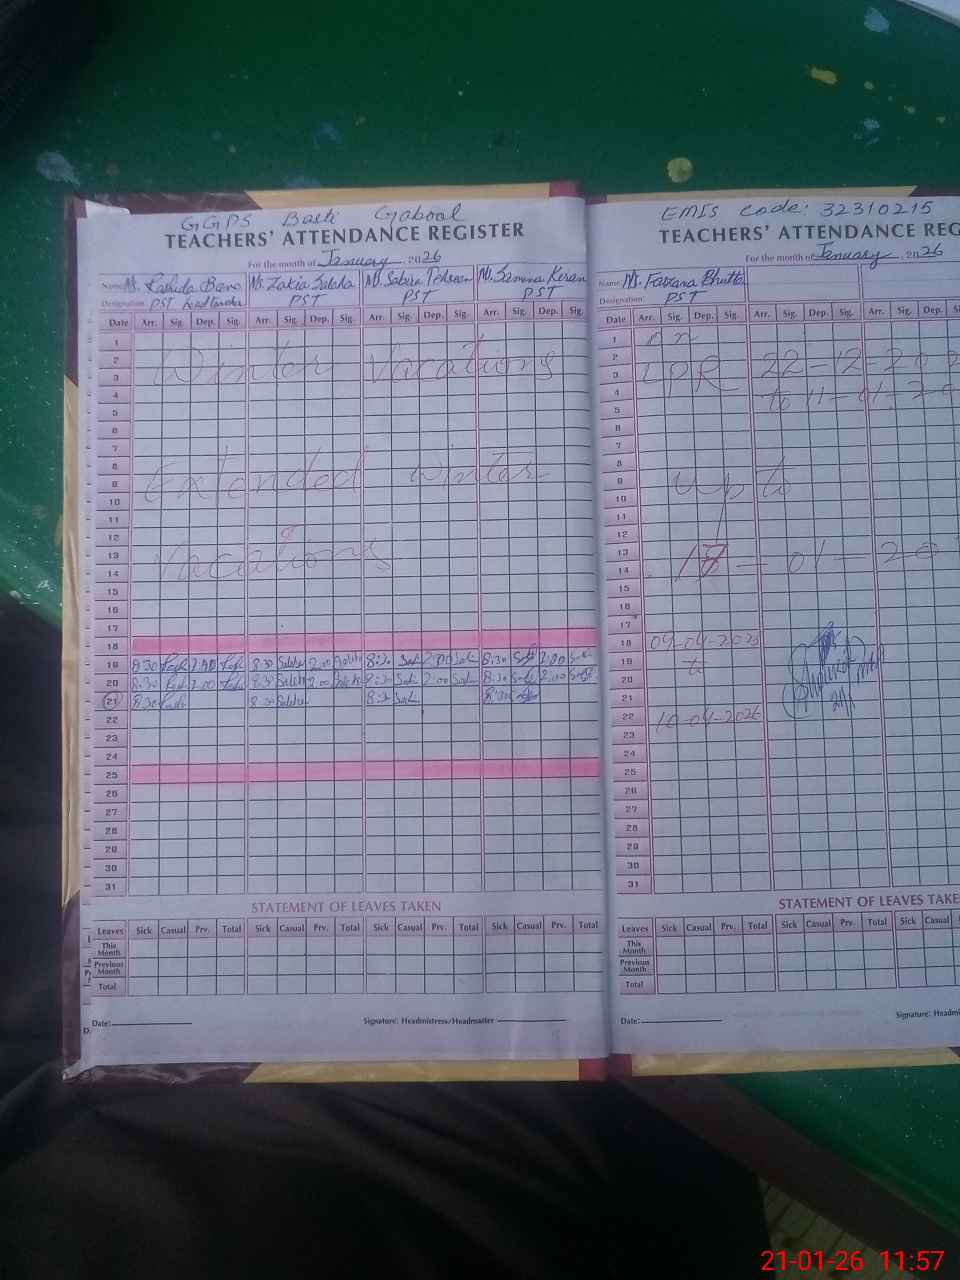 GGPS Basti Gabool
TEACHERS' ATTENDANCE REGISTER
For the month of January 2026
Name Designation
PST Head teacher
Zakia
PST
PST
PST
Date Arr. Sig. Dep. Sig. Arr. Sig. Dep. Sig. Arr. Sig. Dep. Sig. Arr. Sig. Dep. Sig.
1
2
3
Winter Vacations
4
5
6
7
8
9
Extended winter
10
11
12
13
Vacations
14
15
16
17
18
19 8:30 8:30 2:00 8:30 2:00 8:30 2:00
20 8:30 2:00 8:30 2:00 8:30 2:00 8:30 2:00
21 8:30 8:30 8:30 8:30
22
23
24
25
26
27
28
29
30
31
STATEMENT OF LEAVES TAKEN
Leaves Sick Casual Prv. Total Sick Casual Prv. Total Sick Casual Prv. Total Sick Casual Prv. Total
This Month
Previous Month
Total
Date:
Signature: Headmistress/Headmaster
EMIS code: 32310215
TEACHERS' ATTENDANCE REG
For the month of January 2026
Name: Designation:
PST
Date Arr. Sig. Dep. Sig. Arr. Sig. Dep. Sig. Arr. Sig. Dep.
1 on
2
3 LPR 22-12-202
4 to 11-01-20
5
6
7
8
9 up to
10
11
12
13 18-01-20
14
15
16
17
18
19 to
20
21
22 10-04-2026
23
24
25
26
27
28
29
30
31
STATEMENT OF LEAVES TAKE
Leaves Sick Casual Prv. Total Sick Casual Prv. Total Sick Casual
This Month
Previous Month
Total
Date:
Signature: Headmi
21-01-26 11:57